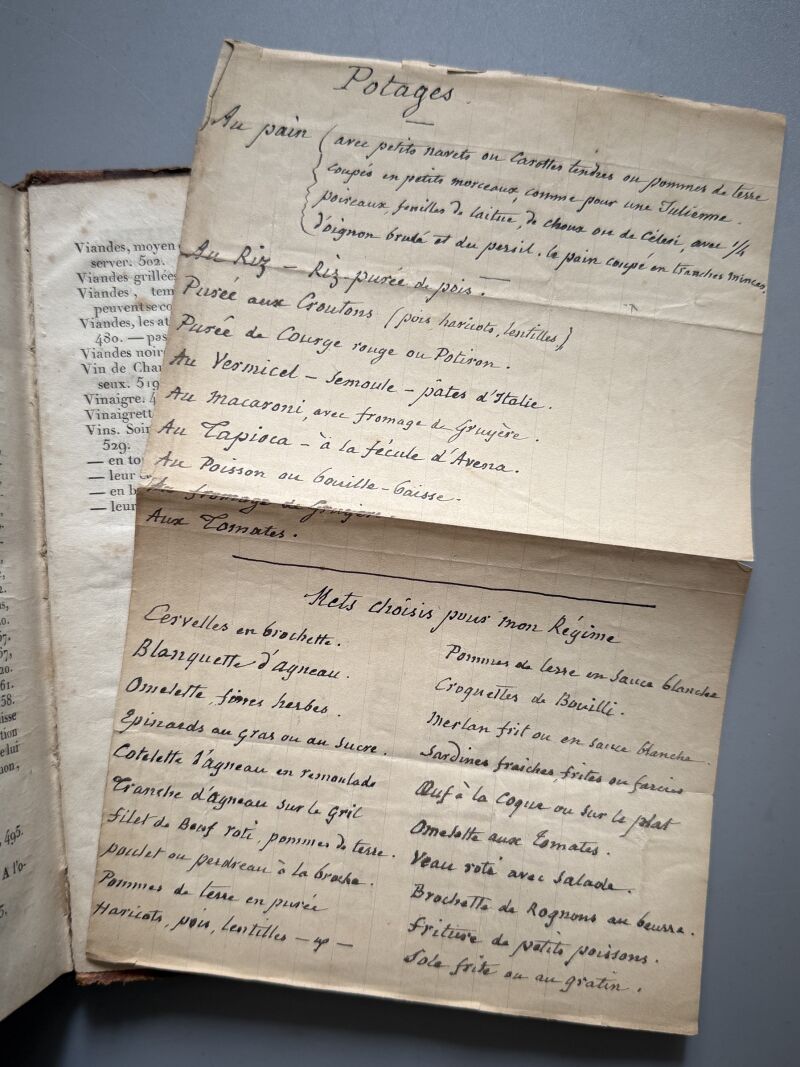 Potages.
Au pain
avec petits navets ou Carottes tendres ou pommes de terre
coupés en petits morceaux, comme pour une Julienne.
poireaux, feuilles de laitue, de choux ou de Céleri, avec 1/4
d'oignon brulé et du persil. le pain coupé en tranches minces.
Au Riz – Riz purée de pois.
Purée aux Croutons (pois haricots, lentilles)
Purée de Courge rouge ou Potiron.
Au Vermicel – Semoule – pâtes d'Italie.
Au macaroni, avec fromage de Gruyère.
Au Tapioca – à la fécule d'Avena.
Au Poisson ou bouille-baisse.
Au fromage de Gruyère.
Aux Tomates.
Mets choisis pour mon Régime
Cervelles en brochette.
Blanquette d'agneau.
Omelette, fines herbes.
Epinards au gras ou au sucre.
Cotelette d'agneau en remoulade
Tranche d'agneau sur le Gril
filet de Bœuf roti, pommes de terre.
poulet ou perdreau à la broche.
Pommes de terre en purée
Haricots, pois, lentilles –
Pommes de terre en sauce blanche
Croquettes de Bouilli.
Merlan frit ou en sauce blanche.
Sardines fraiches, frites ou farcies
Œuf à la Coque ou sur le plat
Omelette aux Tomates.
Veau roti avec Salade.
Brochette de Rognons au beurre.
friture de petits poissons.
Sole frite ou au gratin.
Viandes, moyen
server. 502.
Viandes grillées
Viandes, tem
peuvent se co
Viandes, les at
480. — pas
Viandes noir
Vin de Char
seux. 519
Vinaigre. 4
Vinaigrett
Vins. Soin
529.
— en to
— leur
— en b
— leur
61.
58.
isse
tion
elui
ion,
495.
A l'o-
5.